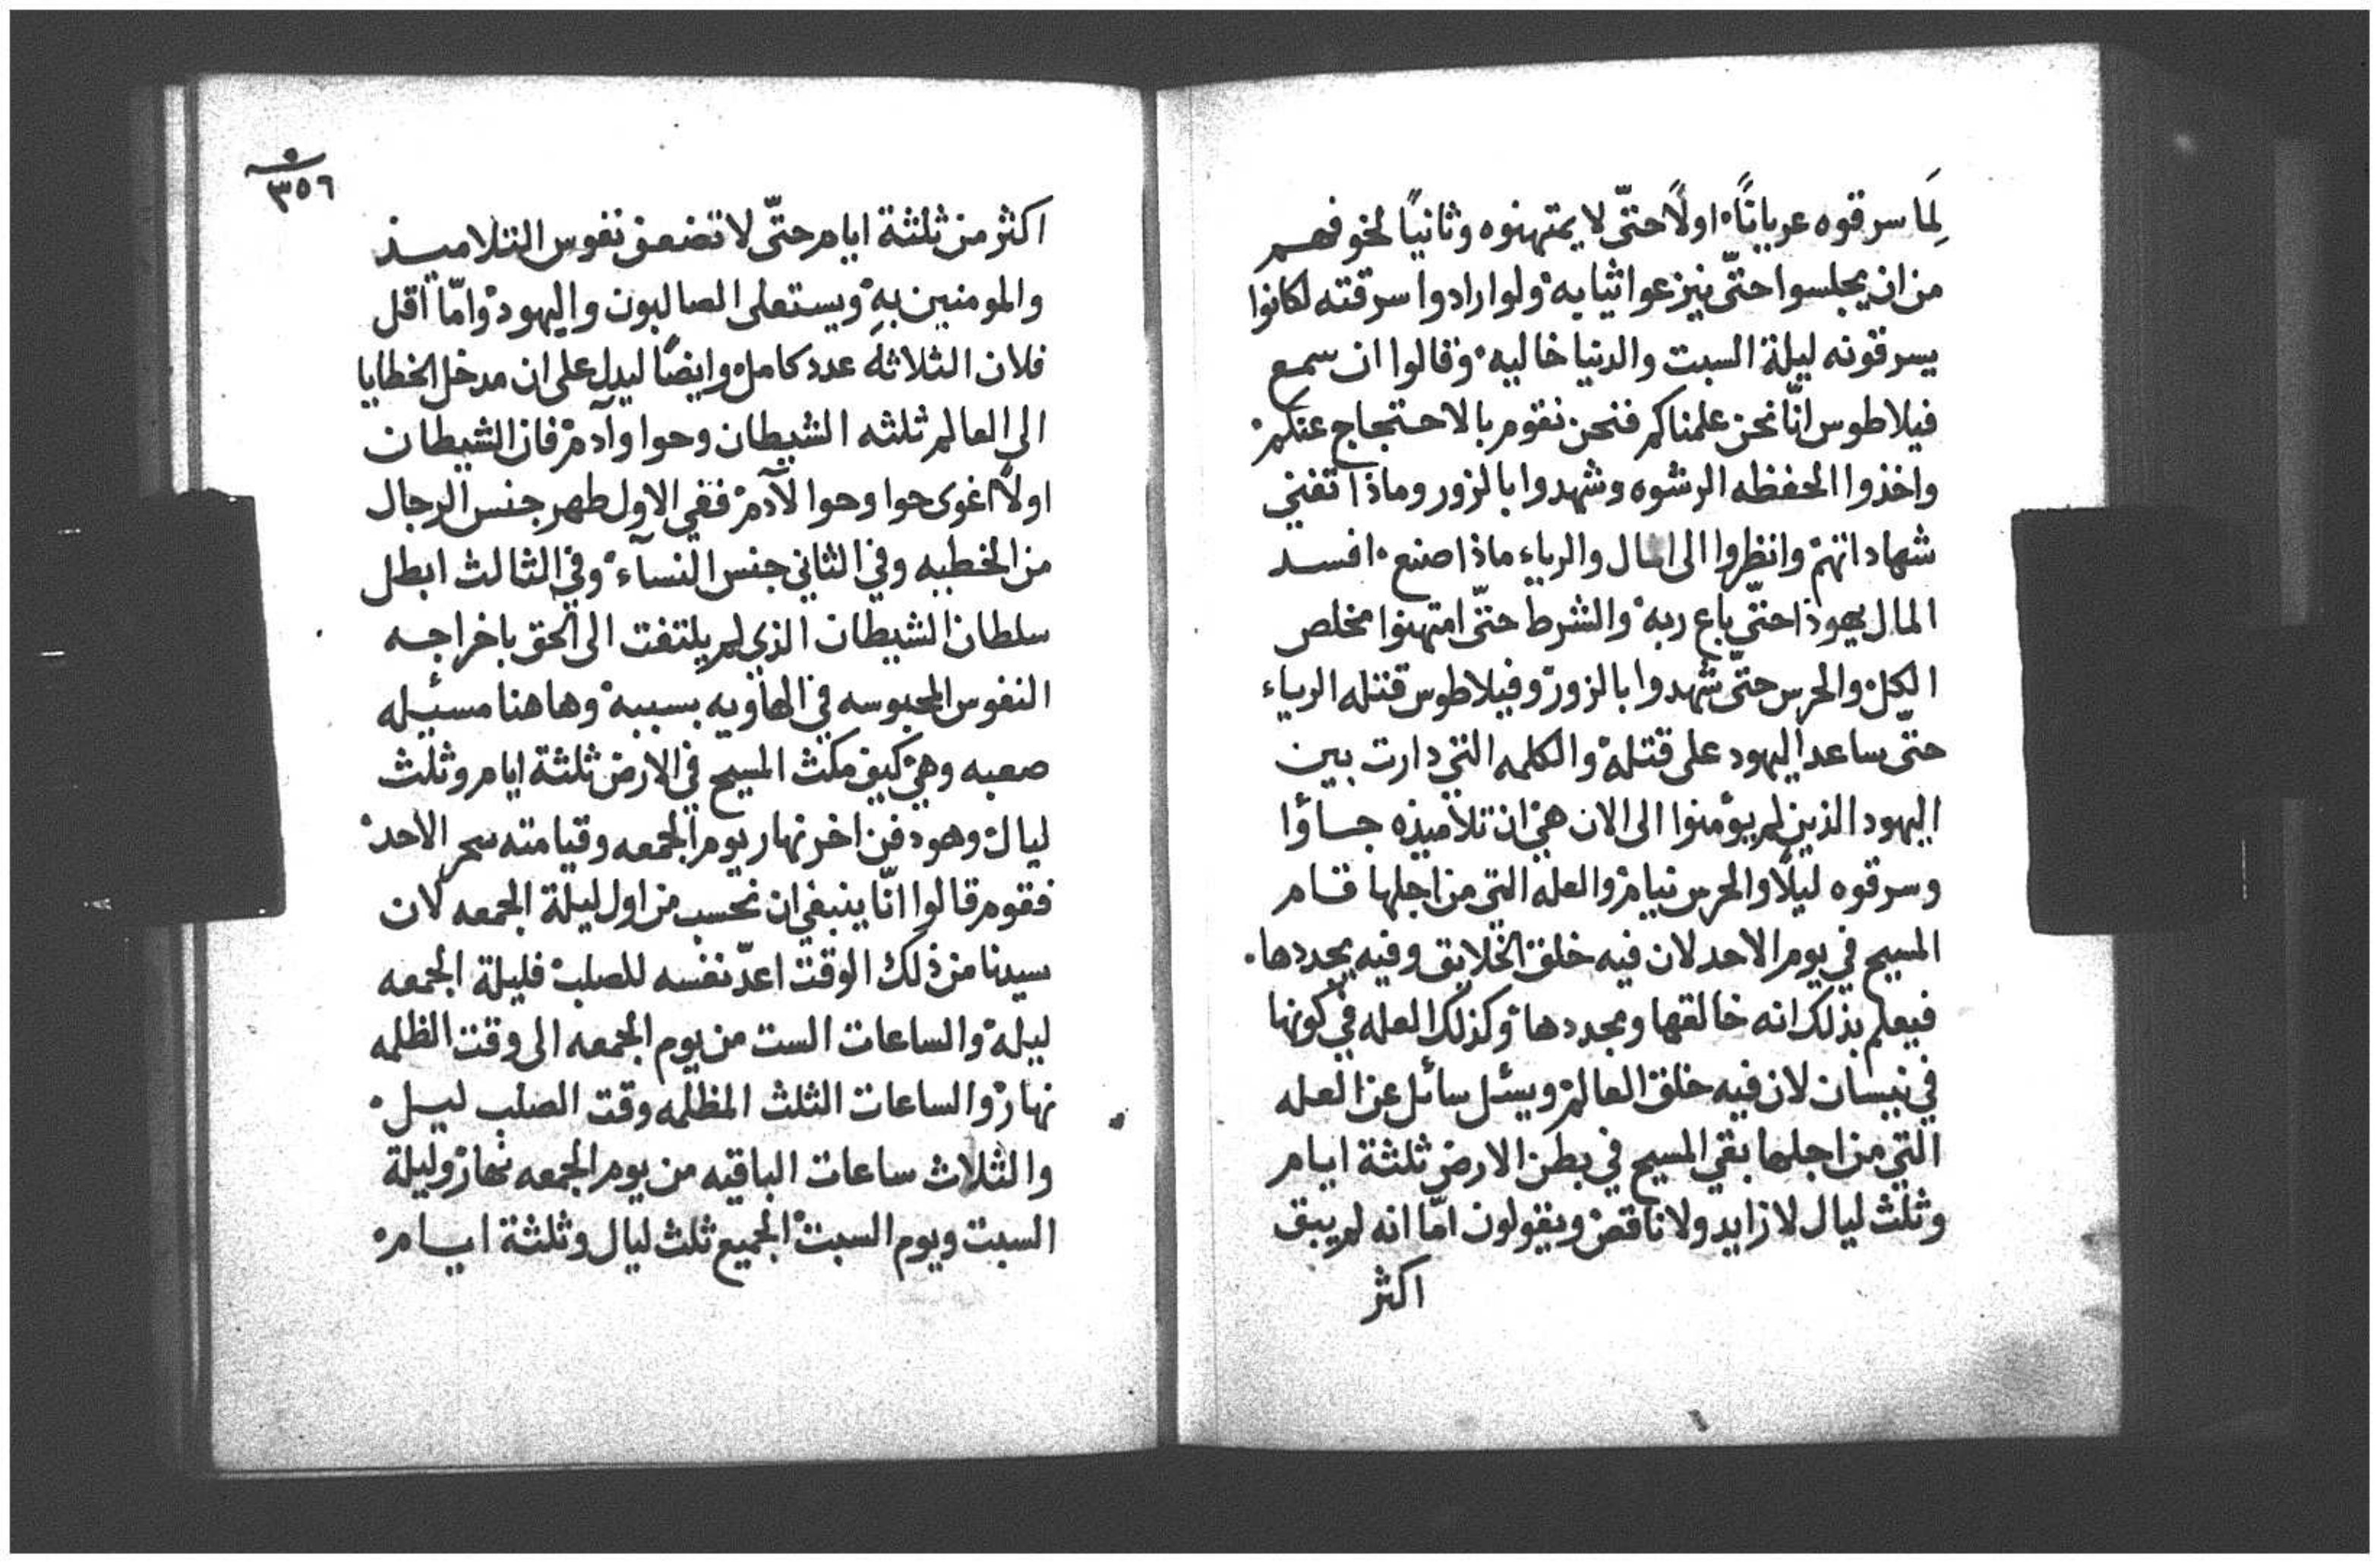 لِمَا سرقوه عريانًا. اولًا حتّى لا يمتهنوه وثانيًا لخوفهم
من ان يجلسوا حتّى ينزعوا ثيابه. ولو ارادوا سرقته لكانوا
يسرقونه ليلة السبت والدنيا خاليه. وقالوا ان سمع
فيلاطوس انّا نحن علمناكم فنحن نقوم بالاحتجاج عنكم.
واخذوا الحفظه الرشوه وشهدوا بالزور وماذا تغني
شهاداتهم. وانظروا الى المال والرياء ماذا صنع. افسد
المال يهوذا حتّى باع ربه. والشرط حتّى امتهنوا مخلص
الكل. والحرس حتّى شهدوا بالزور. وفيلاطوس قتله الرياء
حتّى ساعد اليهود على قتله. والكلمه التي دارت بين
اليهود الذين لم يؤمنوا الى الان هي. ان تلاميذه جاؤا
وسرقوه ليلًا والحرس نيام. والعله التي من اجلها قام
المسيح في يوم الاحد لان فيه خلق الخلايق وفيه يجددها.
فيعلم بذلك انه خالقها ومجددها. وكذلك العله في كونها
في نيسان لان فيه خلق العالم. ويسئل سائل عن العله
التي من اجلها بقي المسيح في بطن الارض ثلثة ايام
وثلث ليال لا زايد ولا ناقص. ويقولون امّا انه لم يبق
اكثر
٣٥٦
اكثر من ثلثة ايام حتّى لا تضعف نفوس التلاميذ
والمومنين بهِ. ويستعلى الصالبون واليهود. وامّا اقل
فلان الثلاثه عدد كامل. وايضًا ليدل على ان مدخل الخطايا
الى العالم ثلثه الشيطان وحوا وآدم. فان الشيطان
اولًا اغوى حوا وحوا لآدم. ففي الاول طهر جنس الرجال
من الخطيه وفي الثاني جنس النسآء. وفي الثالث ابطل
سلطان الشيطان الذي لم يلتفت الى الحق باخراجه
النفوس المحبوسه في الهاويه بسببه. وهاهنا مسئله
صعبه وهي. كيف مكث المسيح في الارض ثلثة ايام وثلث
ليال. وهو دفن اخر نهار يوم الجمعه وقيامته سحر الاحد.
فقوم قالوا انّا ينبغي ان نحسب من اول ليلة الجمعه لان
سيدنا من ذلك الوقت اعدّ نفسه للصلب. فليلة الجمعه
ليله. والساعات الست من يوم الجمعه الى وقت الظلمه
نهار. والساعات الثلث المظلمه وقت الصلب ليل.
والثلاث ساعات الباقيه من يوم الجمعه نهار. وليلة
السبت ويوم السبت. الجميع ثلث ليال وثلثة ايام.